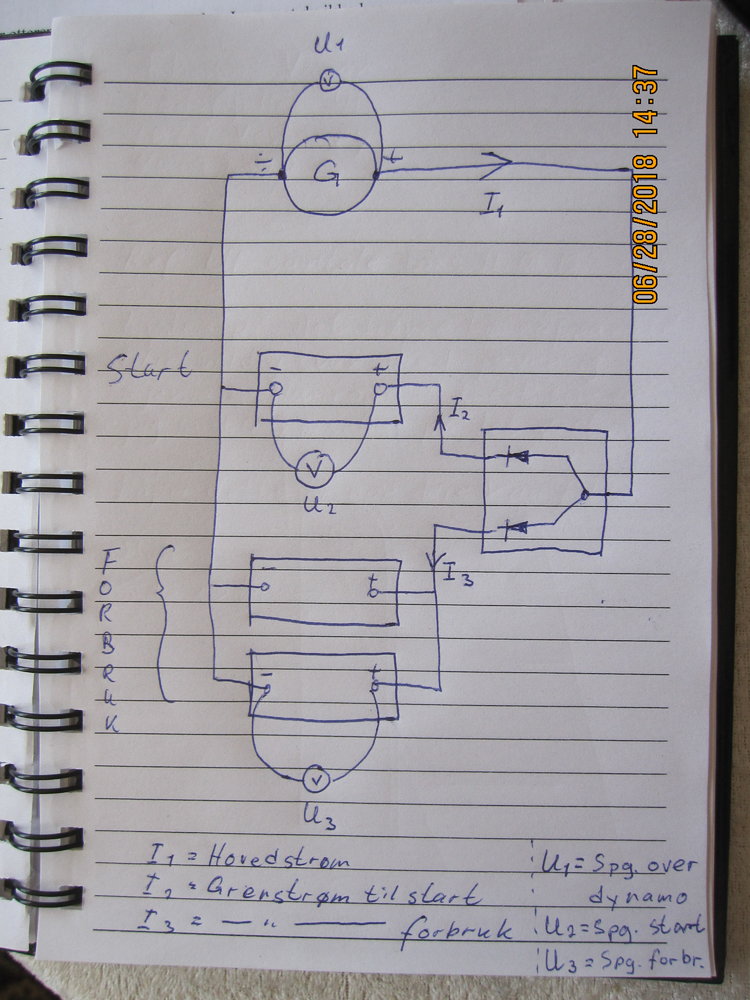 U1
V
÷ G +
I1
06/28/2018 14:37
Start
- +
I2
V
U2
- +
I3
FORBRUK
- +
V
U3
I1 = Hovedstrøm
I2 = Grenstrøm til start
I3 = — " — forbruk
U1 = Spg. over
dynamo
U2 = Spg. start
U3 = Spg. forbr.